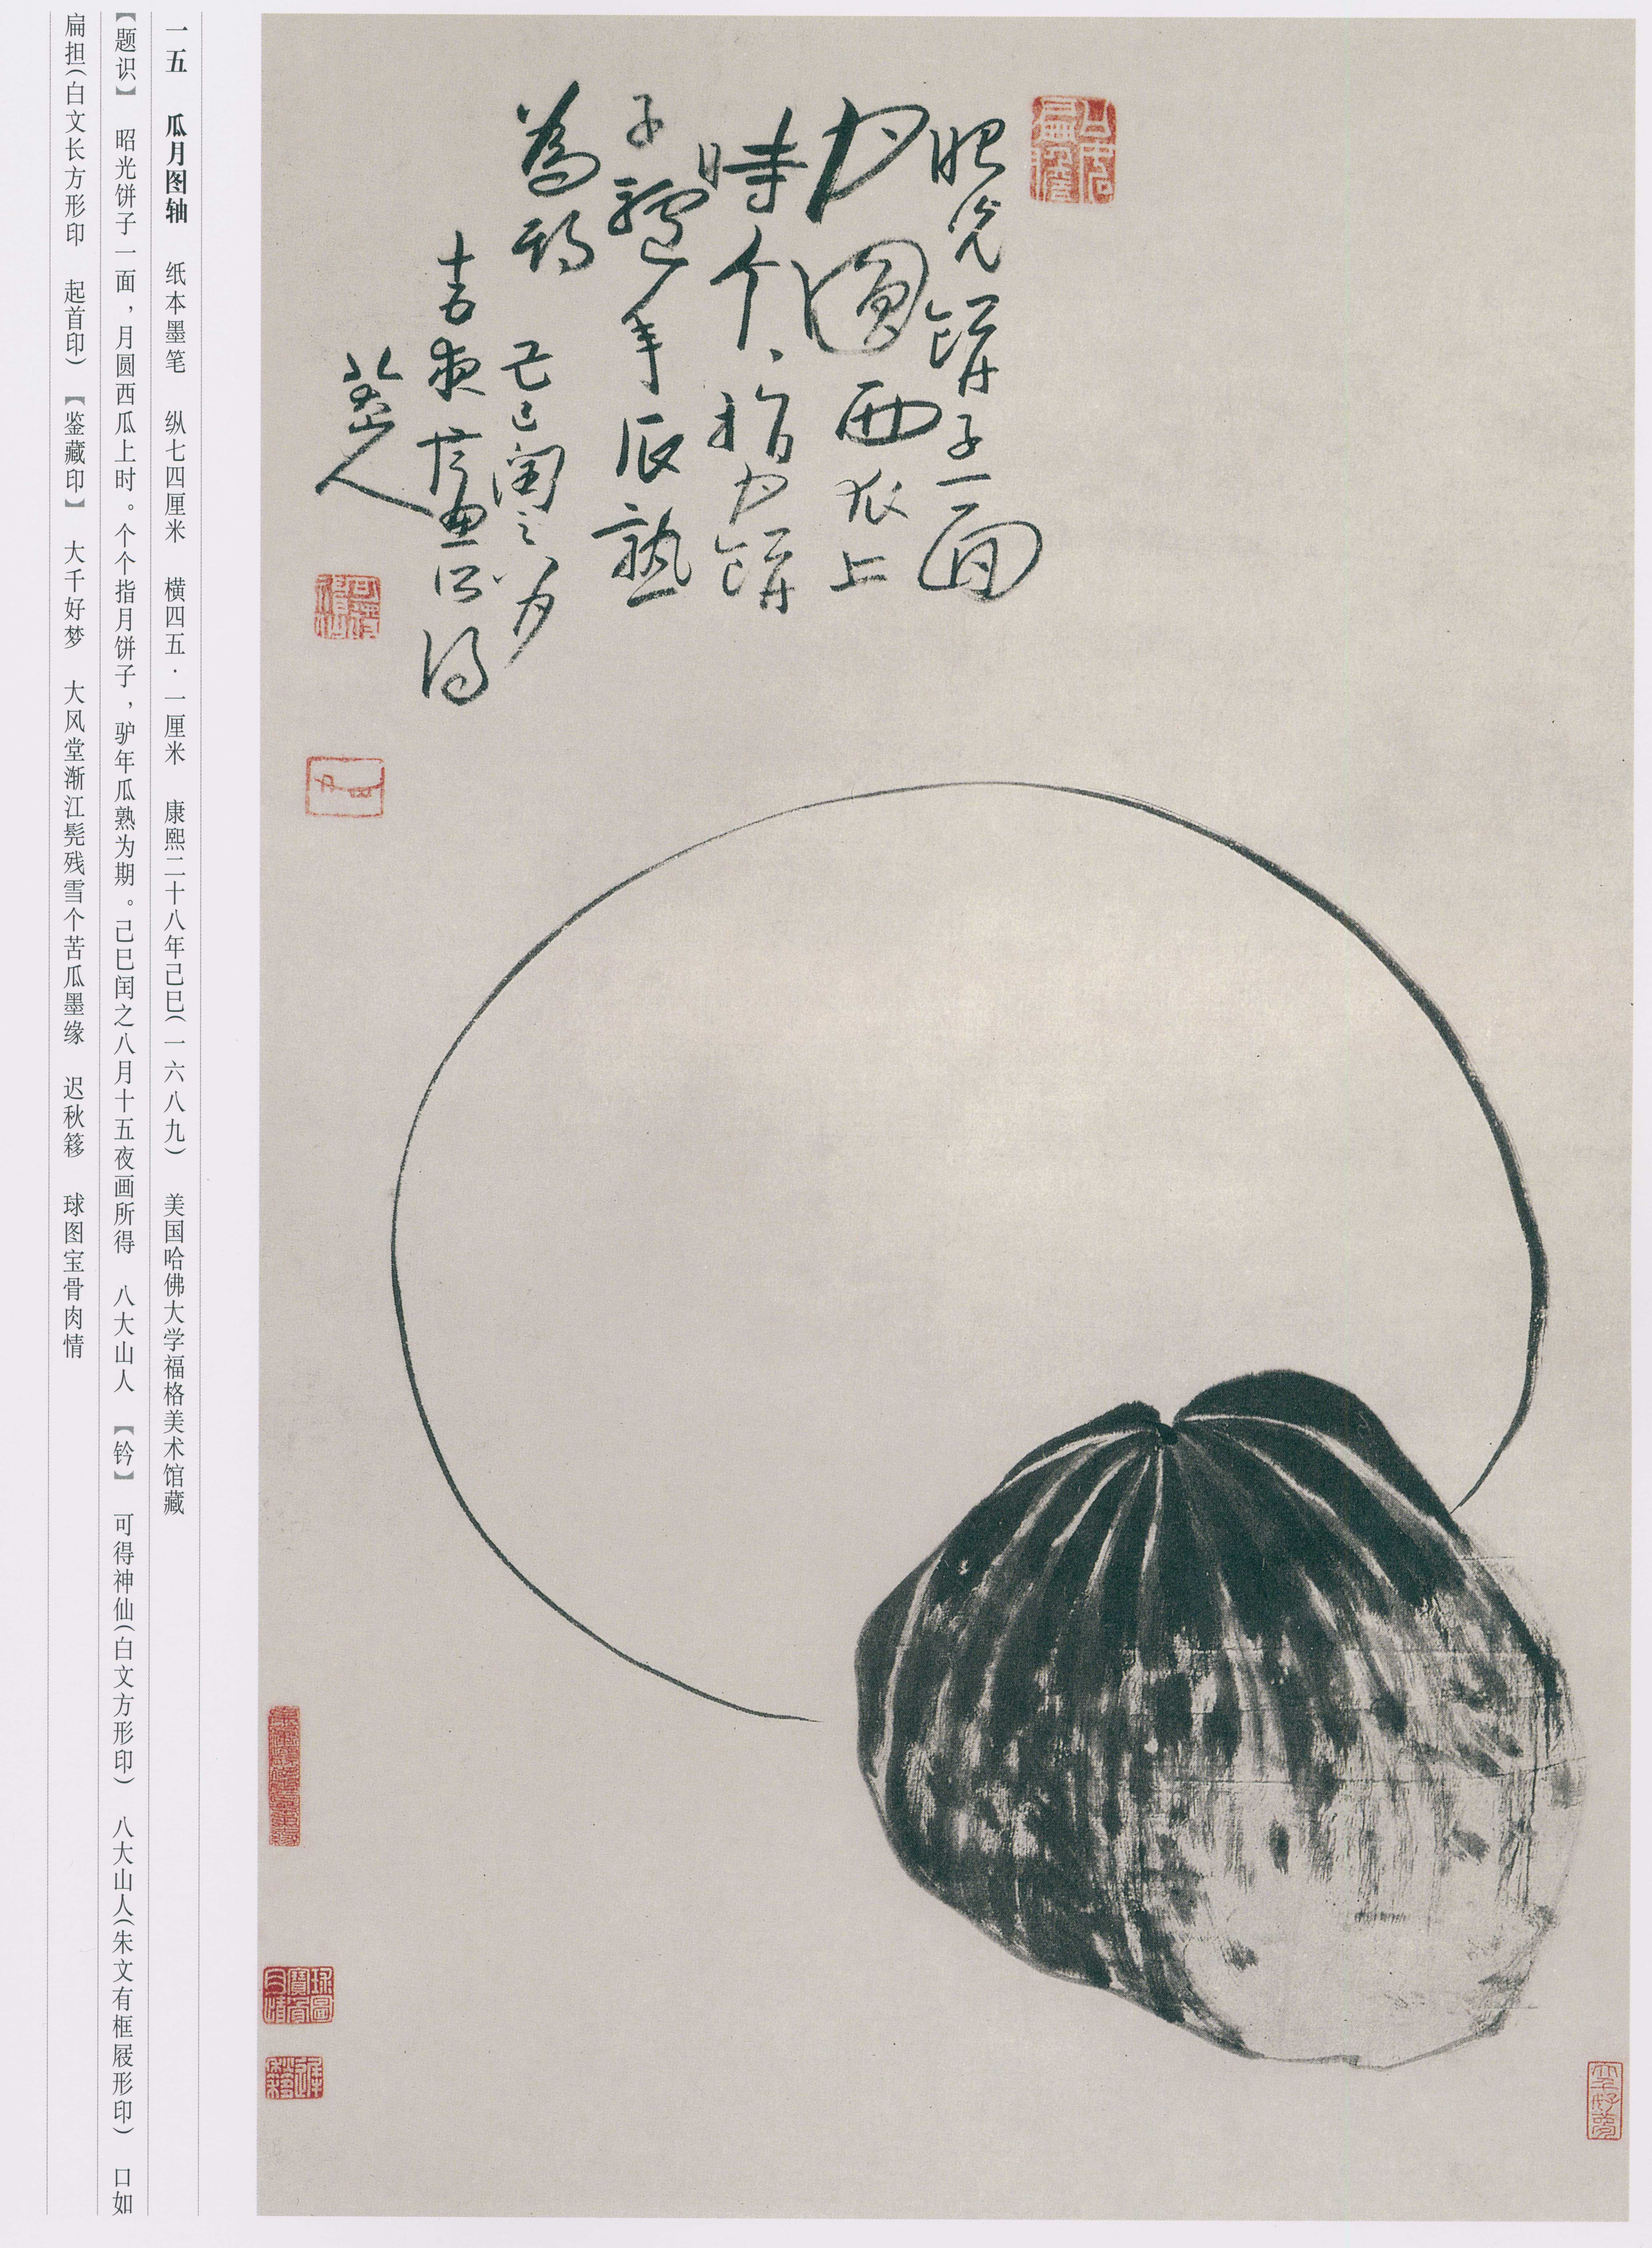 一五 瓜月图轴 纸本墨笔 纵七四厘米 横四五·一厘米 康熙二十八年己巳(一六八九) 美国哈佛大学福格美术馆藏
【题识】 昭光饼子一面，月圆西瓜上时。个个指月饼子，驴年瓜熟为期。己巳闰之八月十五夜画所得 八大山人 【钤】 可得神仙(白文方形印) 八大山人(朱文有框屐形印) 口如
扁担(白文长方形印 起首印) 【鉴藏印】 大千好梦 大风堂渐江髡残雪个苦瓜墨缘 迟秋簃 球图宝骨肉情
昭光餅子一面
月圓西瓜上
時个、指月餅
子驢年瓜熟
為期
己巳閏之八月
十五夜畫所得
八大山人
可得神仙
球圖寶骨肉情
遲秋簃
大千好夢